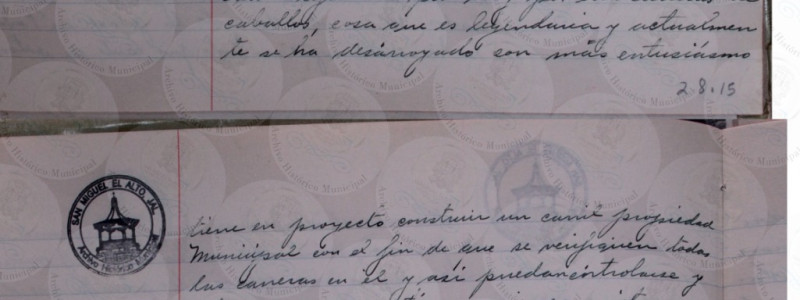 caballos, cosa que es legendaria y actualmen
te se ha desarroyado son más entusiásmo
2.8.15
SAN MIGUEL EL ALTO, JAL.
Archivo Histórico Municipal
tiene en proyecto construir un carril propiedad
Municipal con el fin de que se verifiquen todas
las carreras en él y así puedan cóntrolarse y